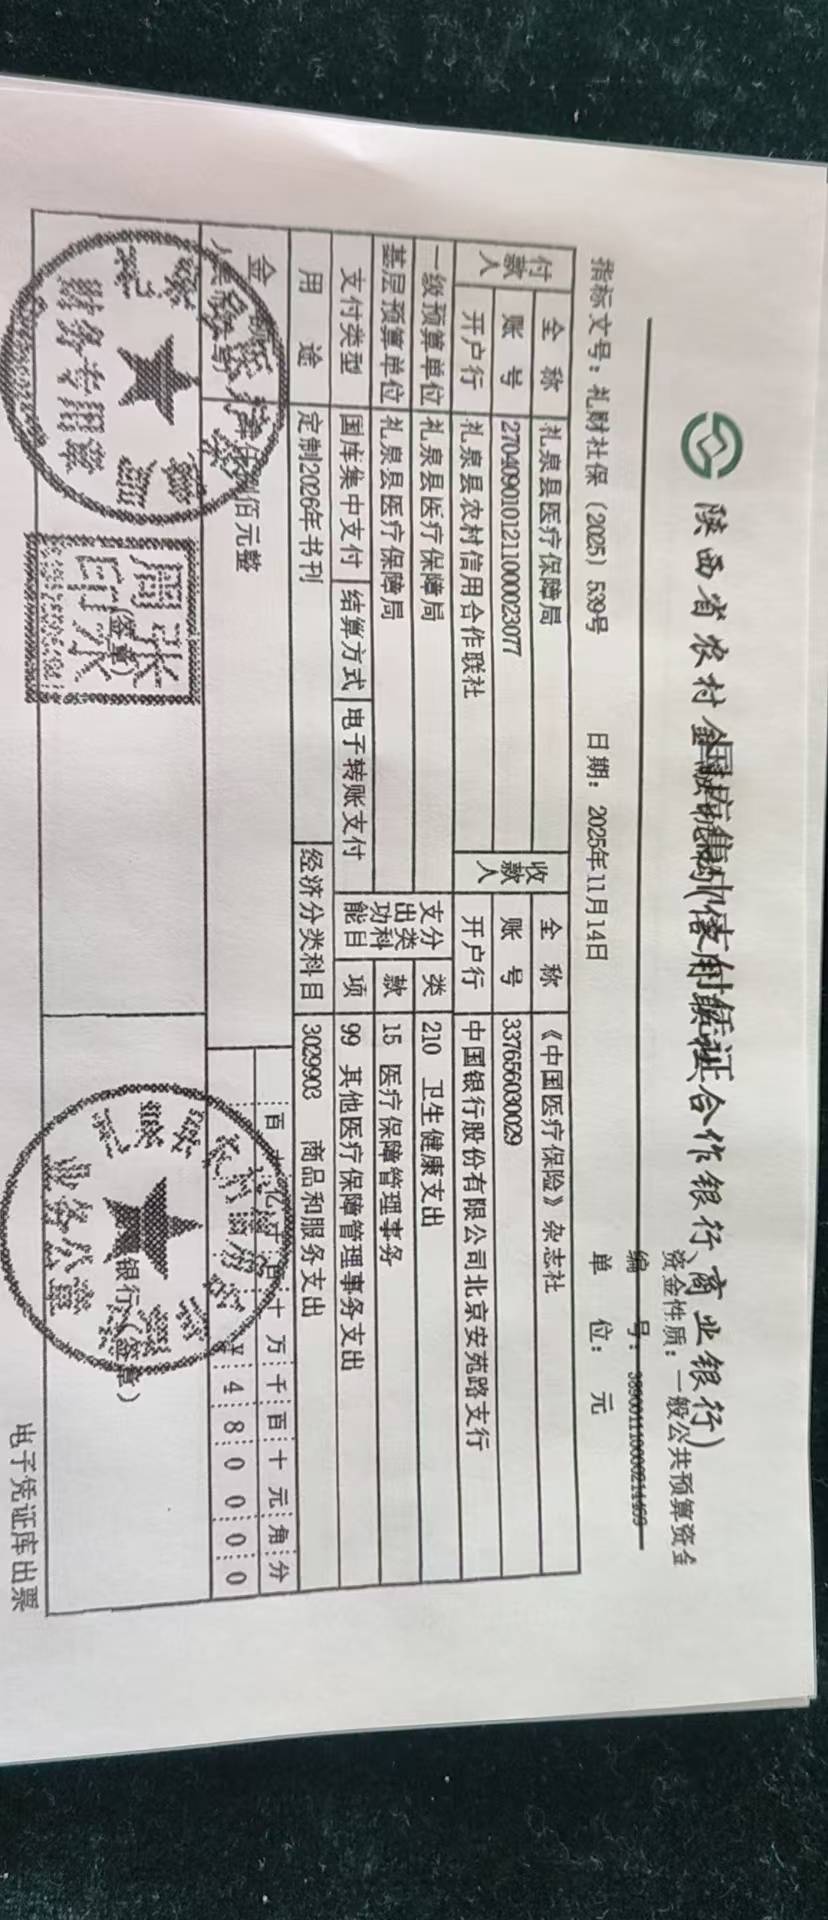 陕西省农村金融机构(信用社、农村合作银行、商业银行)
国库集中支付凭证
资金性质：一般公共预算资金
编 号：
指标文号：礼财社保（2025）539号 日期：2025年11月14日 单 位：元
付款人 全 称 礼泉县医疗保障局 收款人 全 称 《中国医疗保险》杂志社
账 号 2704090101211000023077 账 号 337656030029
开户行 礼泉县农村信用合作联社 开户行 中国银行股份有限公司北京安苑路支行
一级预算单位 礼泉县医疗保障局 支出功能分类科目 类 210 卫生健康支出
基层预算单位 礼泉县医疗保障局 款 15 医疗保障管理事务
支付类型 国库集中支付 结算方式 电子转账支付 项 99 其他医疗保障管理事务支出
用 途 定制2026年书刊 经济分类科目 3029903 商品和服务支出
金 额 百 十 亿 千 百 十 万 千 百 十 元 角 分
人民币大写 肆仟捌佰元整 ¥ 4 8 0 0 0 0
财务专用章
(签章)
银行（签章）
业务公章
电子凭证库出票